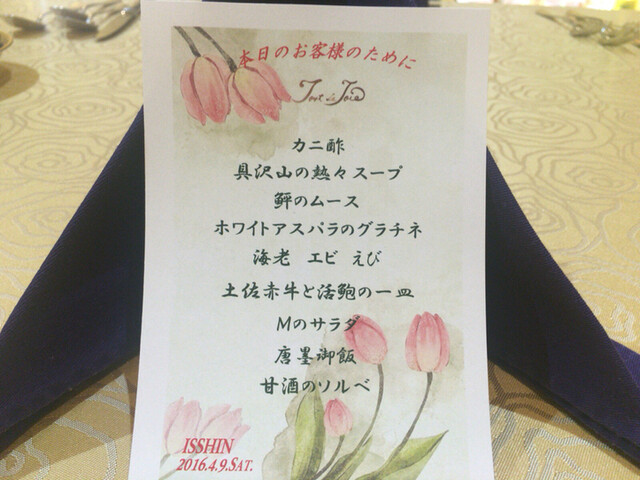 本日のお客様のために
Tout de Joie
カニ酢
具沢山の熱々スープ
鮃のムース
ホワイトアスパラのグラチネ
海老 エビ えび
土佐赤牛と活鮑の一皿
Mのサラダ
唐墨御飯
甘酒のソルベ
ISSHIN
2016.4.9.SAT.